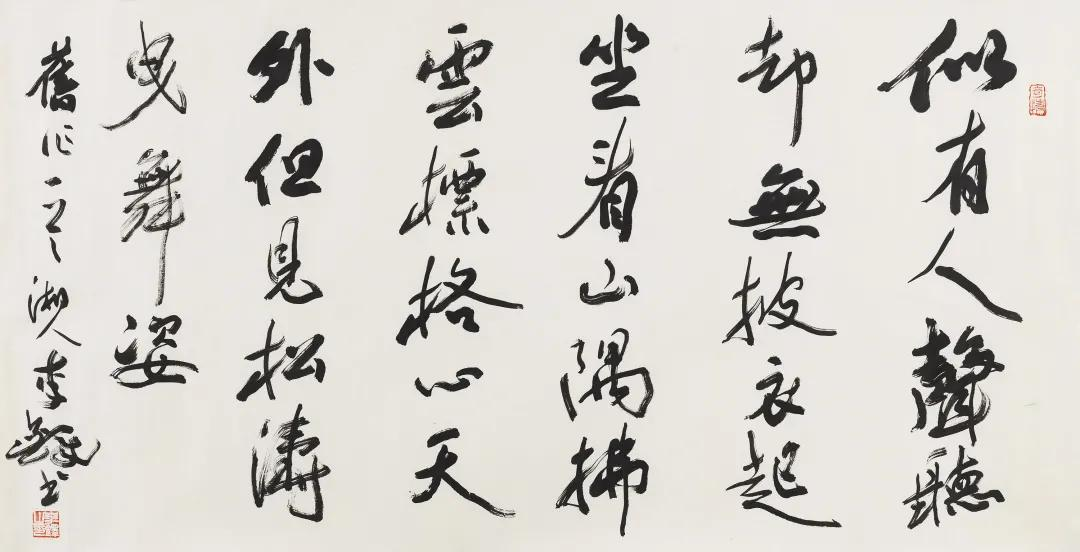 似有人聲聽
却無披衣起
坐看山隅拂
雲標格心天
外但見松濤
曳舞姿
舊作一湘人李鐸書